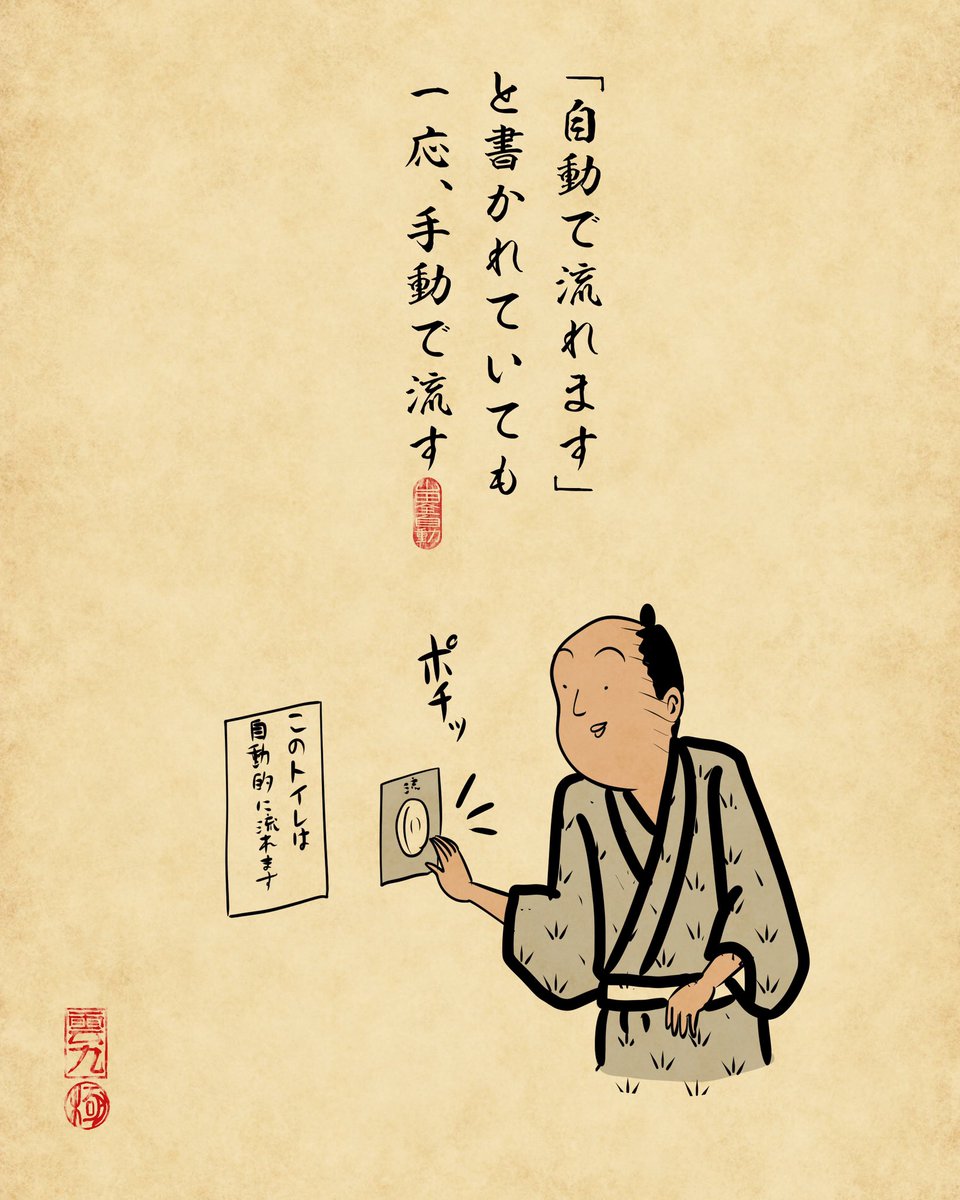 「自動で流れます」
と書かれていても
一応、手動で流す
ポチッ
流
このトイレは
自動的に流れます